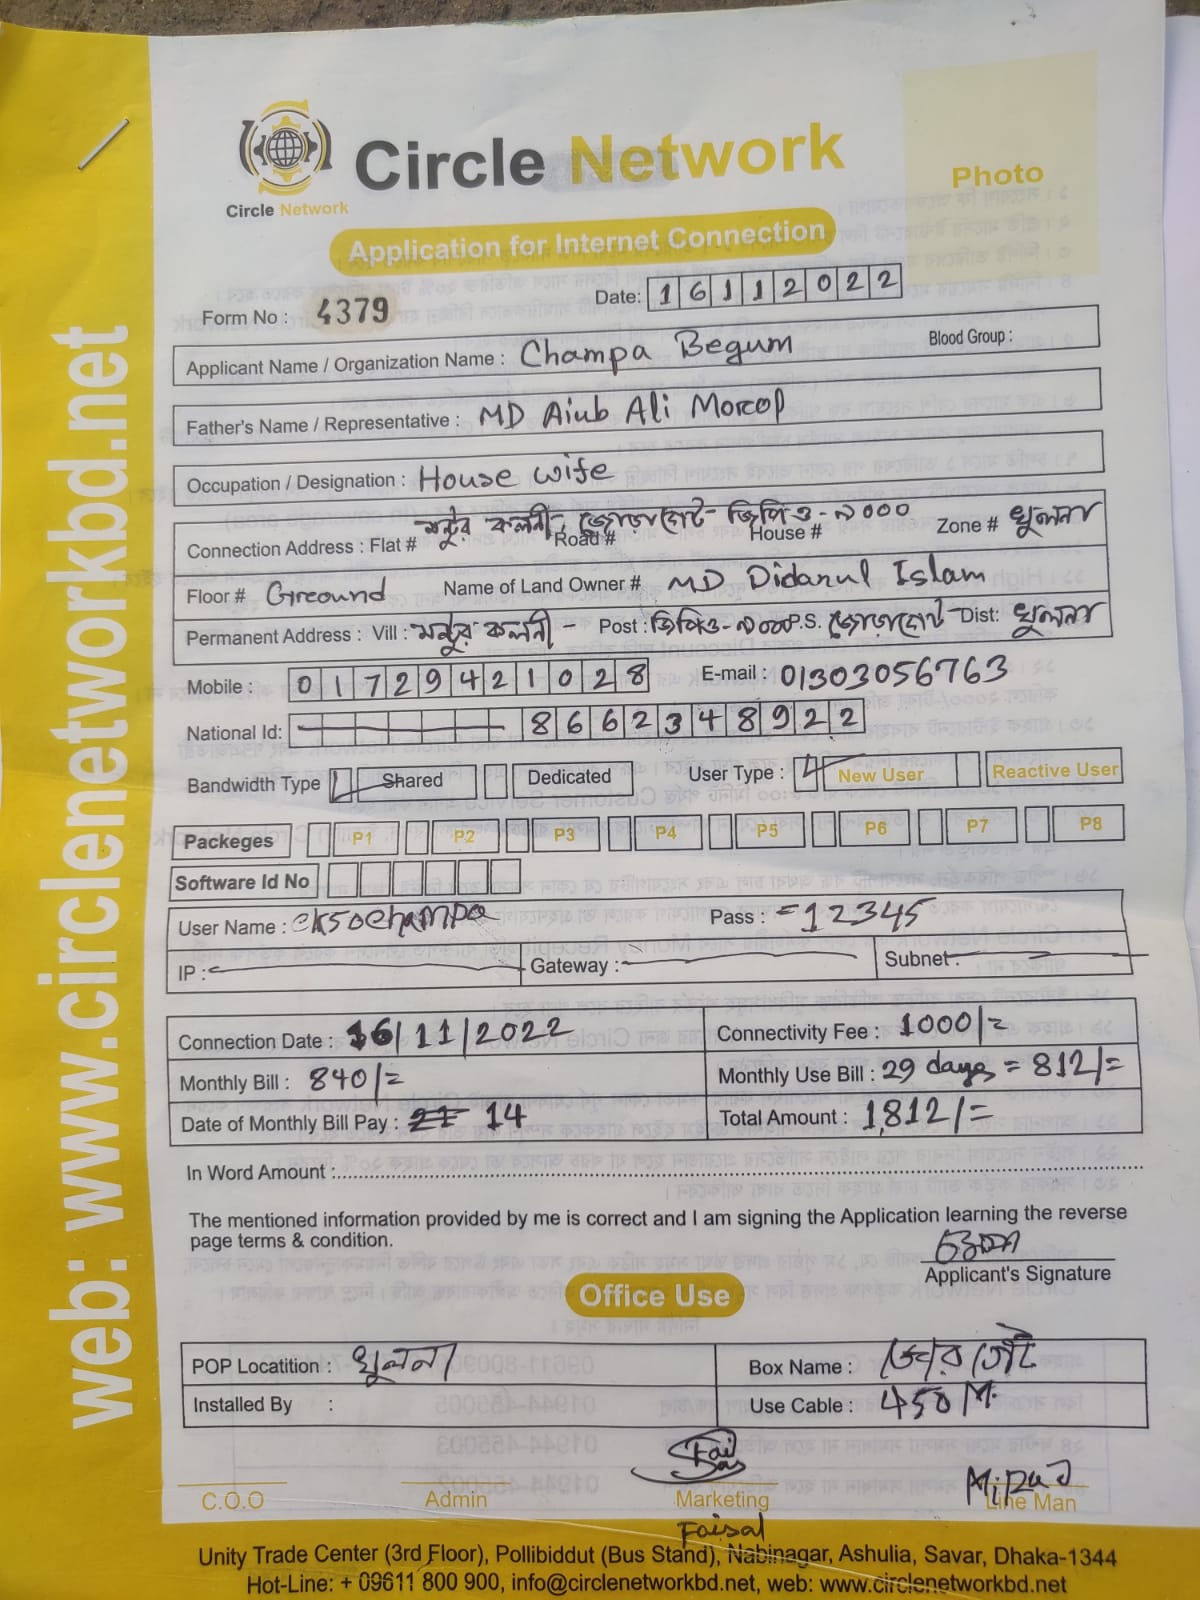 Circle Network
Circle Network
Photo
Application for Internet Connection
Form No : 4379
Date: 16112022
Applicant Name / Organization Name : Champa Begum Blood Group :
Father's Name / Representative : MD Aiub Ali Morol
Occupation / Designation : House wife
Connection Address : Flat # মন্টুর কলনী, Road # জোড়াগেট- House # জিপিও-৯০০০ Zone # খুলনা
Floor # Greound Name of Land Owner # MD Didarul Islam
Permanent Address : Vill : মন্টুর কলনী - Post : জিপিও-৯০০০ P.S. জোড়াগেট Dist: খুলনা
Mobile : 01729421028 E-mail : 01303056763
National Id: 8662348922
Bandwidth Type Shared Dedicated User Type : New User Reactive User
Packeges P1 P2 P3 P4 P5 P6 P7 P8
Software Id No
User Name : eksochampa Pass : =12345
IP : Gateway : Subnet :
Connection Date : 16/11/2022 Connectivity Fee : 1000/=
Monthly Bill : 840/= Monthly Use Bill : 29 days = 812/=
Date of Monthly Bill Pay : 21 14 Total Amount : 1,812/=
In Word Amount :
The mentioned information provided by me is correct and I am signing the Application learning the reverse
page terms & condition.
Applicant's Signature
Office Use
POP Locatition : খুলনা Box Name :
Installed By : Use Cable : 450 M.
C.O.O Admin Marketing Line Man
Faisal
Unity Trade Center (3rd Floor), Pollibiddut (Bus Stand), Nabinagar, Ashulia, Savar, Dhaka-1344
Hot-Line: + 09611 800 900, info@circlenetworkbd.net, web: www.circlenetworkbd.net
web: www.circlenetworkbd.net